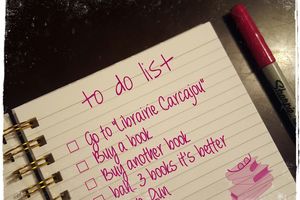 to do list
Go to "Librairie Carcajou"
Buy a book
Buy another book
bah.. 3 books it's better
Run
Sharpie